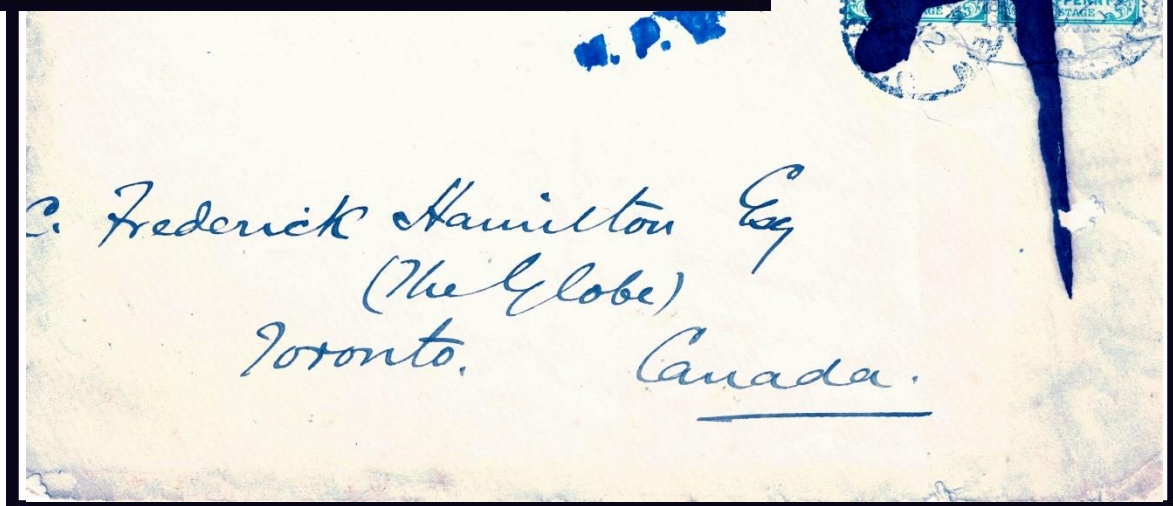 PENNY
POSTAGE
C. Frederick Hamilton Esq
(The Globe)
Toronto. Canada.